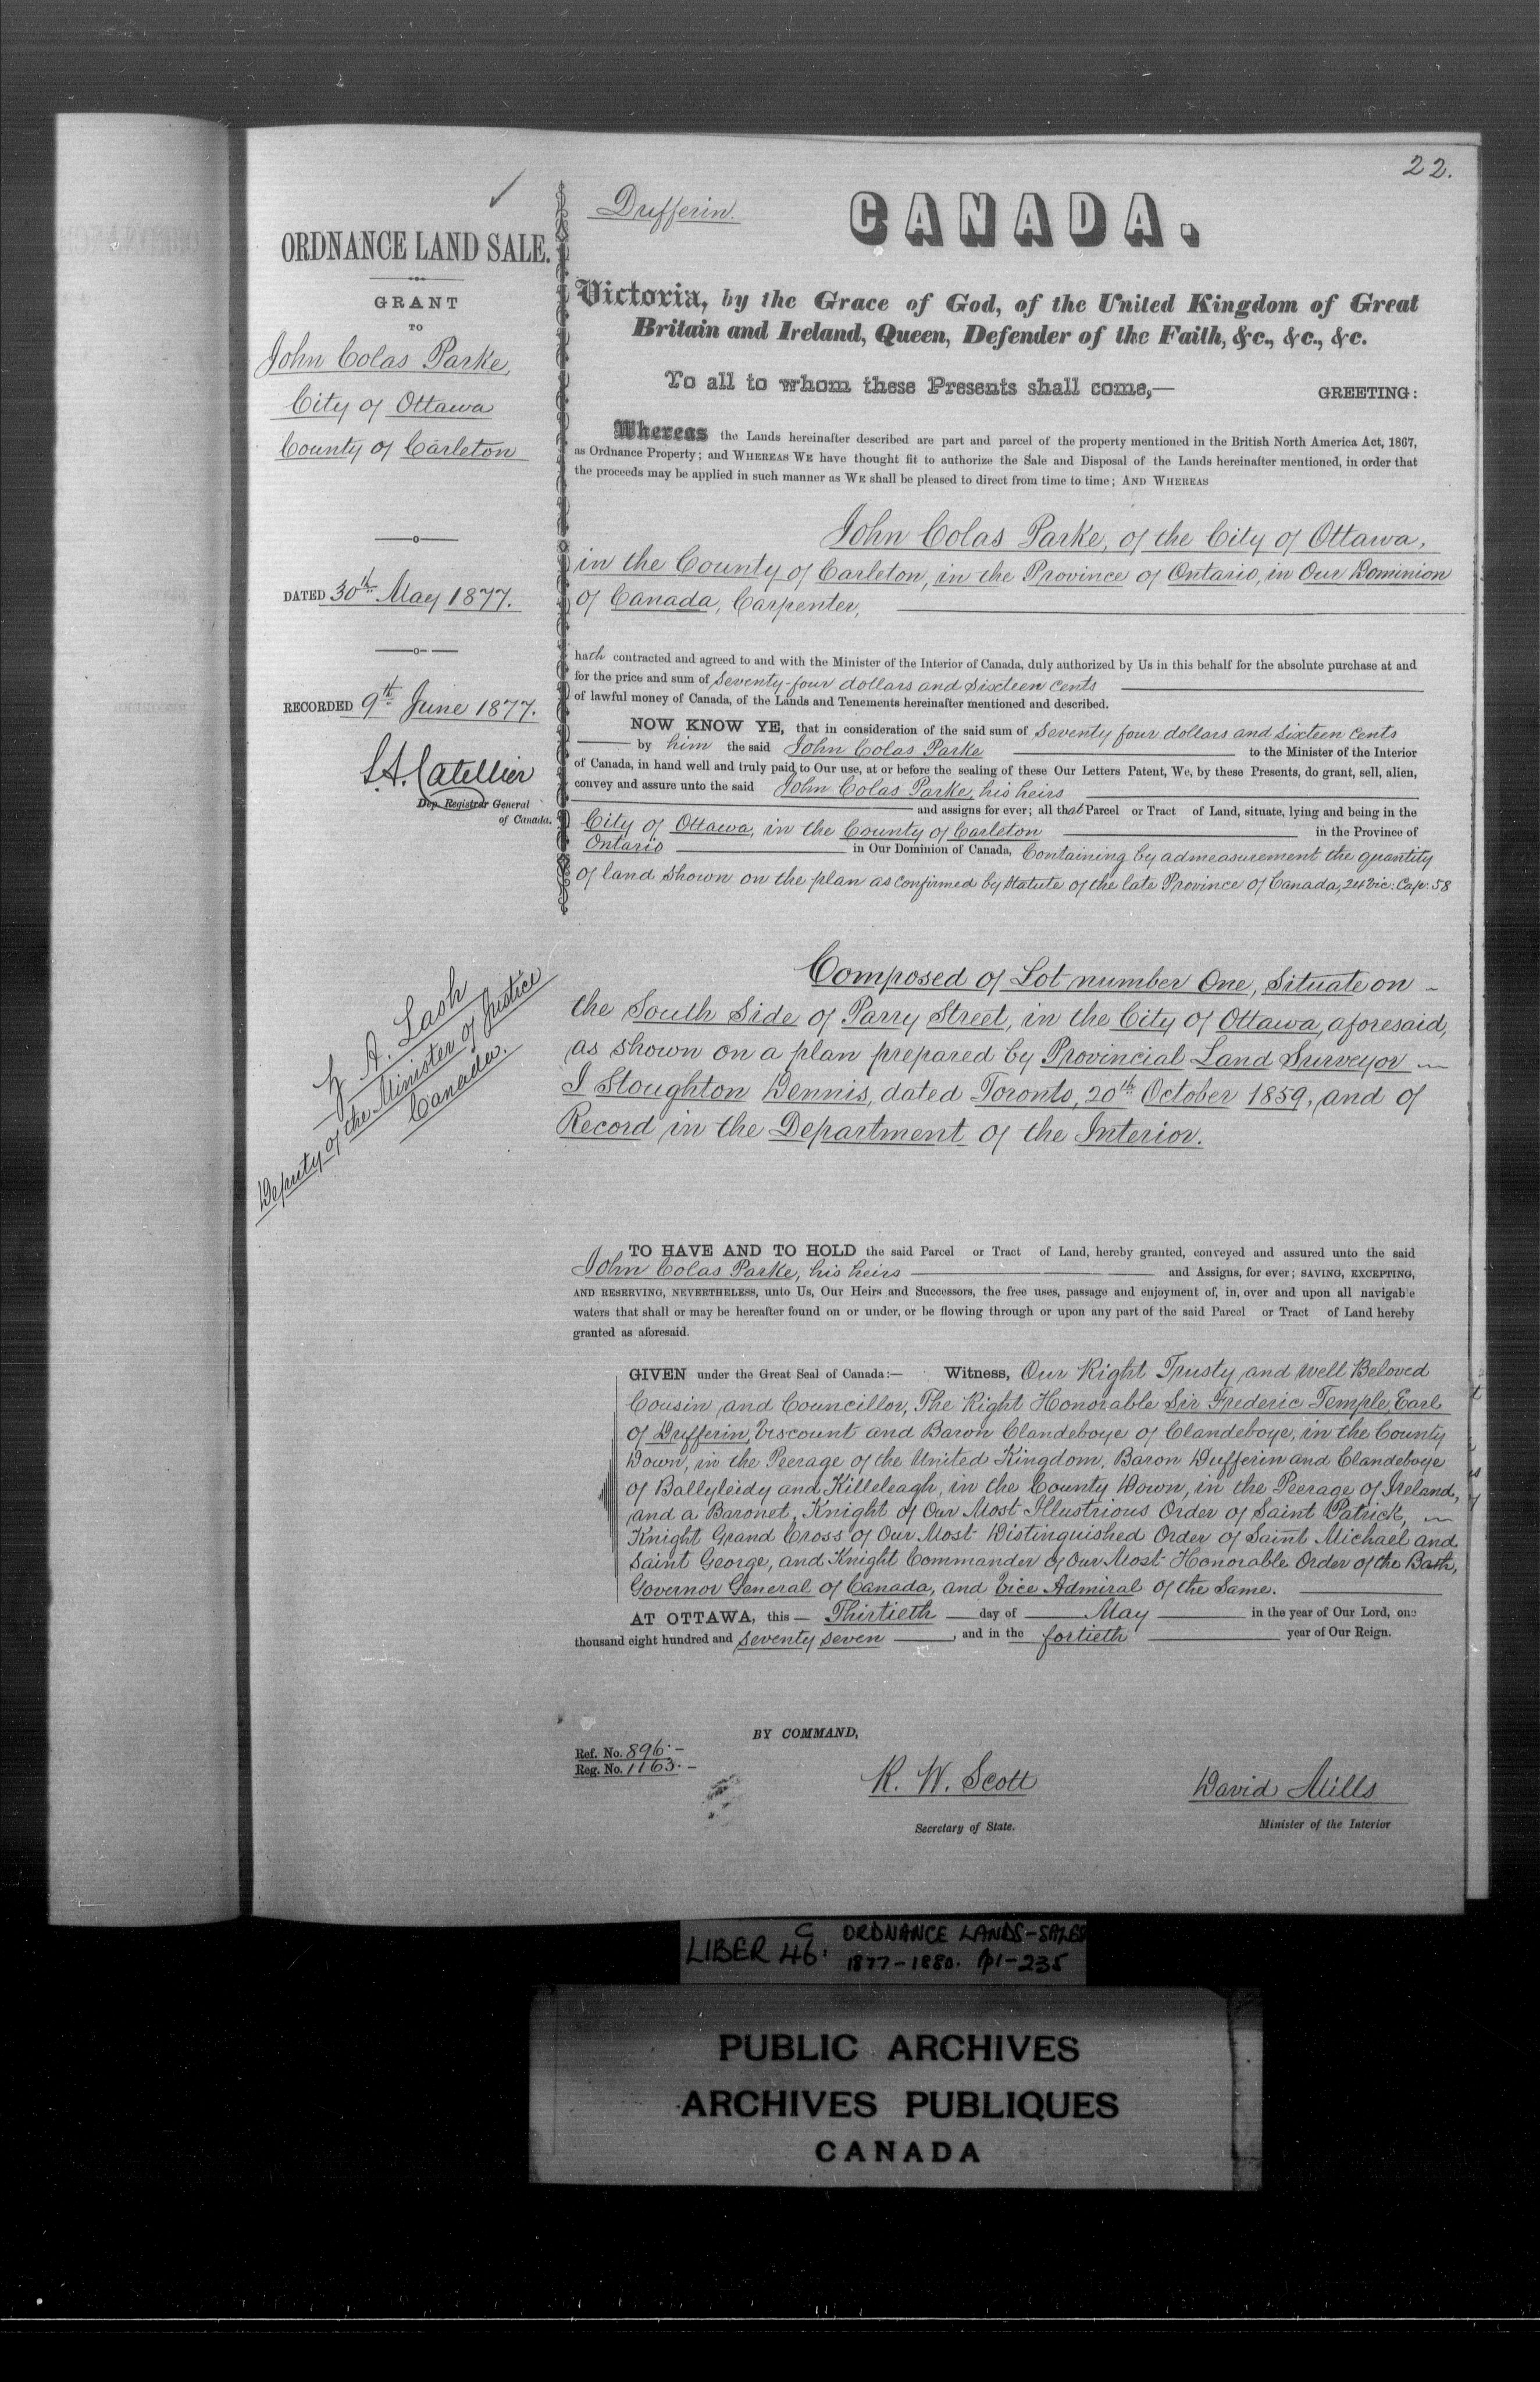 22.
Dufferin.
CANADA.
ORDNANCE LAND SALE.
GRANT
TO
John Colas Parke,
City of Ottawa
County of Carleton
DATED 30th May 1877.
RECORDED 9th June 1877.
L. A. Catellier
Dep. Registrar General
of Canada.
Z A. Lash
Deputy of the Minister of Justice
Canada.
Victoria, by the Grace of God, of the United Kingdom of Great
Britain and Ireland, Queen, Defender of the Faith, &c., &c., &c.
To all to whom these Presents shall come,— GREETING:
Whereas the Lands hereinafter described are part and parcel of the property mentioned in the British North America Act, 1867,
as Ordnance Property; and WHEREAS WE have thought fit to authorize the Sale and Disposal of the Lands hereinafter mentioned, in order that
the proceeds may be applied in such manner as WE shall be pleased to direct from time to time; AND WHEREAS
John Colas Parke, of the City of Ottawa,
in the County of Carleton, in the Province of Ontario, in Our Dominion
of Canada, Carpenter,
hath contracted and agreed to and with the Minister of the Interior of Canada, duly authorized by Us in this behalf for the absolute purchase at and
for the price and sum of Seventy-four dollars and Sixteen cents
of lawful money of Canada, of the Lands and Tenements hereinafter mentioned and described.
NOW KNOW YE, that in consideration of the said sum of Seventy four dollars and Sixteen cents
by him the said John Colas Parke to the Minister of the Interior
of Canada, in hand well and truly paid to Our use, at or before the sealing of these Our Letters Patent, We, by these Presents, do grant, sell, alien,
convey and assure unto the said John Colas Parke, his heirs
and assigns for ever; all that Parcel or Tract of Land, situate, lying and being in the
City of Ottawa, in the County of Carleton in the Province of
Ontario in Our Dominion of Canada, Containing by admeasurement the quantity
of land shown on the plan as confirmed by Statute of the late Province of Canada, 24 Vic: Cap: 58
Composed of Lot number One, Situate on
the South Side of Parry Street, in the City of Ottawa, aforesaid,
as shown on a plan prepared by Provincial Land Surveyor
J Stoughton Dennis, dated Toronto, 20th October 1859, and of
Record in the Department of the Interior.
TO HAVE AND TO HOLD the said Parcel or Tract of Land, hereby granted, conveyed and assured unto the said
John Colas Parke, his heirs and Assigns, for ever; SAVING, EXCEPTING,
AND RESERVING, NEVERTHELESS, unto Us, Our Heirs and Successors, the free uses, passage and enjoyment of, in, over and upon all navigable
waters that shall or may be hereafter found on or under, or be flowing through or upon any part of the said Parcel or Tract of Land hereby
granted as aforesaid.
GIVEN under the Great Seal of Canada:— Witness, Our Right Trusty and Well Beloved
Cousin and Councillor, The Right Honorable Sir Frederic Temple, Earl
of Dufferin, Viscount and Baron Clandeboye of Clandeboye, in the County
Down, in the Peerage of the United Kingdom, Baron Dufferin and Clandeboye
of Ballyleidy and Killeleagh, in the County Down, in the Peerage of Ireland,
and a Baronet, Knight of Our Most Illustrious Order of Saint Patrick,
Knight Grand Cross of Our Most Distinguished Order of Saint Michael and
Saint George, and Knight Commander of Our Most Honorable Order of the Bath,
Governor General of Canada, and Vice Admiral of the Same.
AT OTTAWA, this Thirtieth day of May in the year of Our Lord, one
thousand eight hundred and seventy seven, and in the fortieth year of Our Reign.
BY COMMAND,
Ref. No. 896.
Reg. No. 1163.
R. W. Scott
Secretary of State.
David Mills
Minister of the Interior
LIBER 46: C ORDNANCE LANDS-SALES
1877-1880. p1-235
PUBLIC ARCHIVES
ARCHIVES PUBLIQUES
CANADA